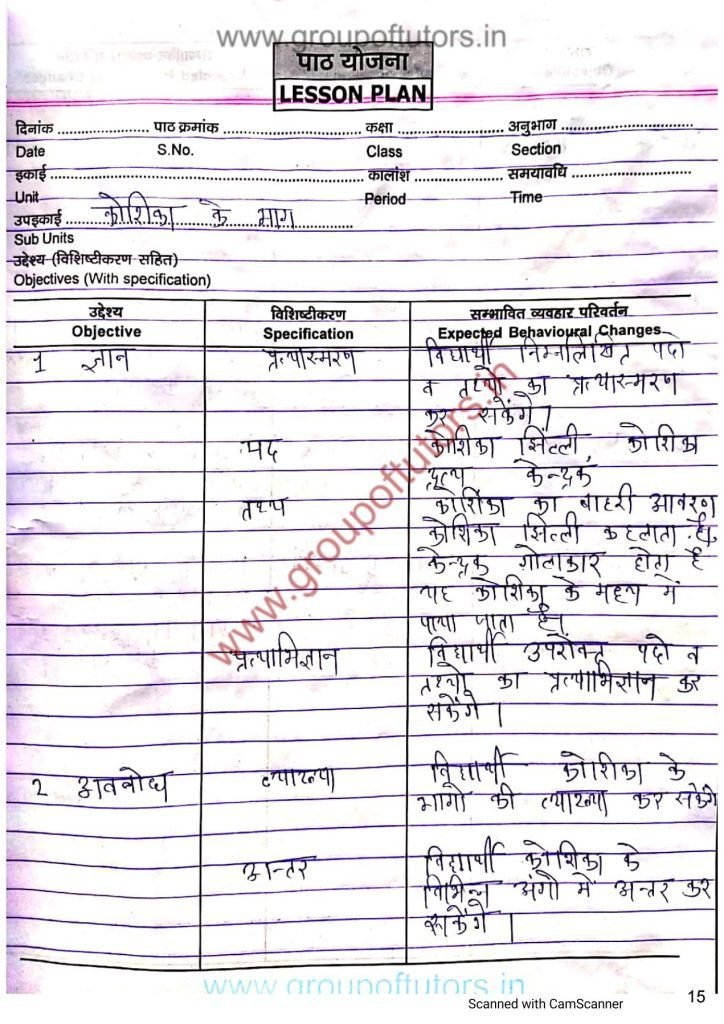 www.groupoftutors.in
पाठ योजना
LESSON PLAN
दिनांक ..................... पाठ क्रमांक ................................ कक्षा ........................ अनुभाग ..............................
Date S.No. Class Section
इकाई ........................................................................ कालांश .................... समयावधि ...........................
Unit Period Time
उपइकाई ...... कोशिका के भाग ..............
Sub Units
उद्देश्य (विशिष्टीकरण सहित)
Objectives (With specification)
उद्देश्य विशिष्टीकरण सम्भावित व्यवहार परिवर्तन
Objective Specification Expected Behavioural Changes
1 ज्ञान प्रत्यास्मरण विद्यार्थी निम्नलिखित पदो
व तथ्यो का प्रत्यास्मरण
कर सकेंगे।
पद कोशिका झिल्ली, कोशिका
द्रव्य केन्द्रक
तथ्य कोशिका का बाहरी आवरण
कोशिका झिल्ली कहलाता है,
केन्द्रक गोलाकार होता है
यह कोशिका के मध्य में
पाया जाता है।
प्रत्याभिज्ञान विद्यार्थी उपरोक्त पदो व
तथ्यो का प्रत्याभिज्ञान कर
सकेंगे।
2 अवबोध व्याख्या विद्यार्थी कोशिका के
भागो की व्याख्या कर सकेंगे
अन्तर विद्यार्थी कोशिका के
विभिन्न अंगो में अन्तर कर
सकेंगे।
www.groupoftutors.in
www.groupoftutors.in
Scanned with CamScanner
15